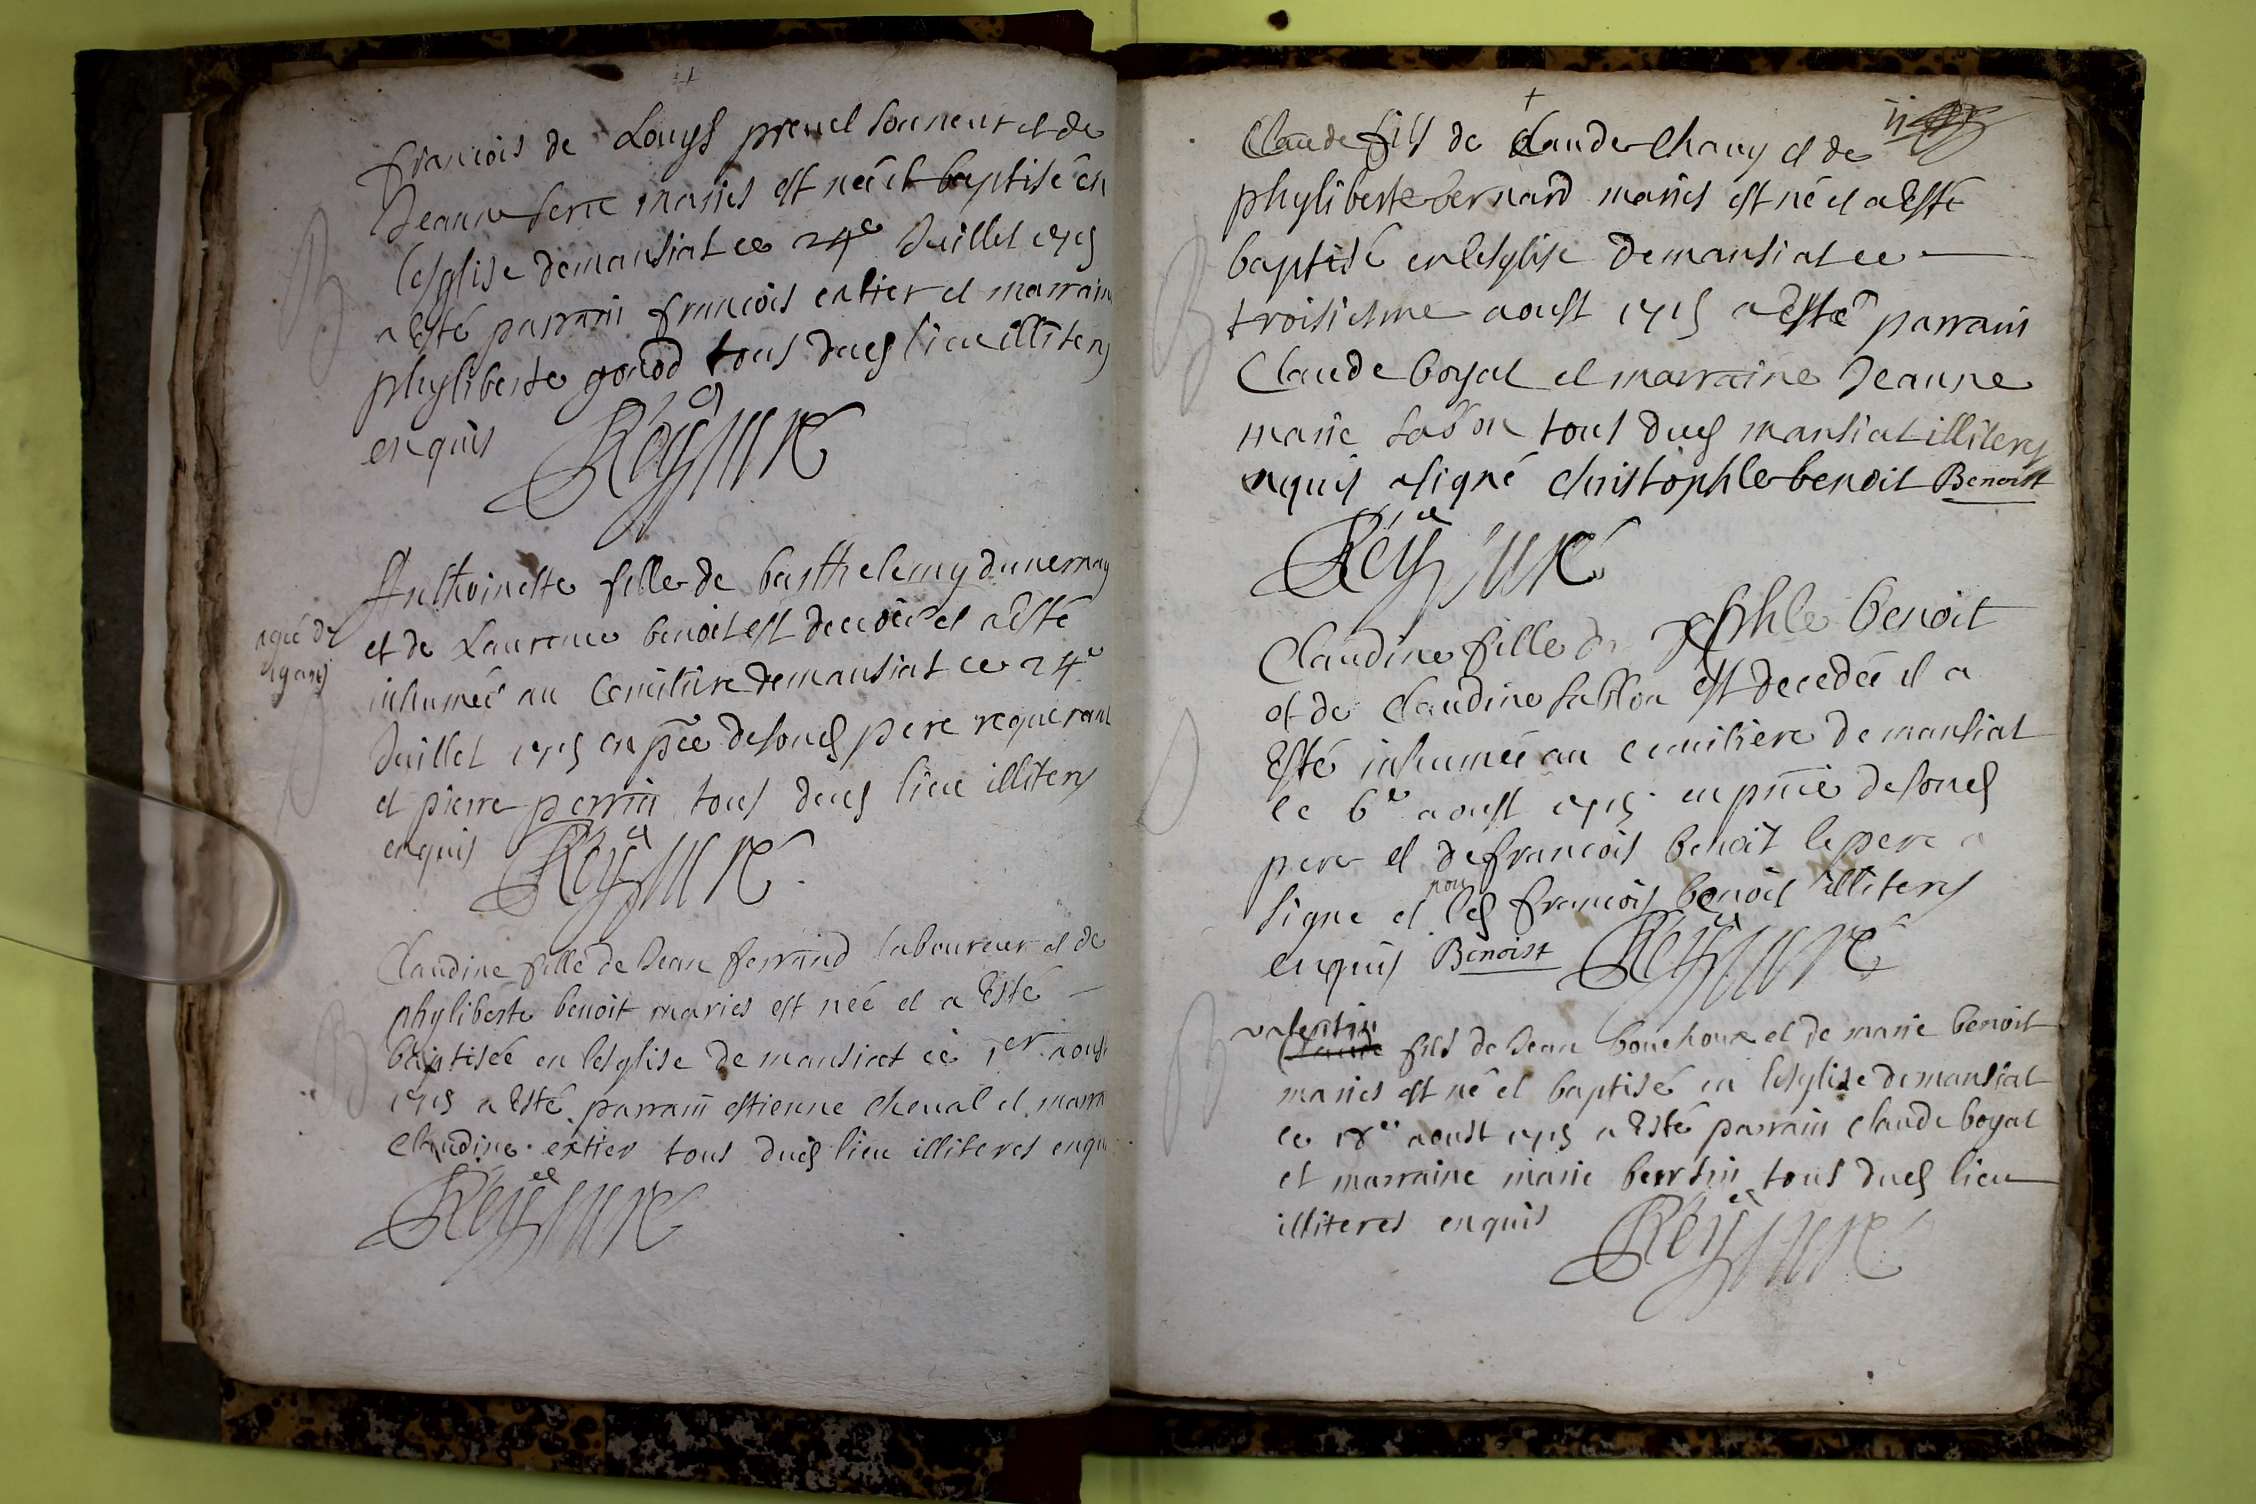 francois de Louys preuel sonneur et de
Jeanne serre mariés est né et baptisé en
lesglise de mansiat ce 24e Juillet 1715
a Esté parrain francois entier et marraine
phyliberte gonod tous duds lieu illiterés
enquis
Rey cure
Anthoinette fille de barthelemy duuernay
et de Laurence benoit est decedée et a Esté
inhumée au Cemitiere de mansiat ce 24e
Juillet 1715 en pñce de sond pere requerant
et pierre perrin tous duds lieu illiterés
enquis
Rey cure
agée de
ans
Claudine fille de Jean ferrand laboureur et de
phyliberte benoit mariés est née et a Esté
baptisée en lesglise de mansiat ce 1er aoust
1715 a Esté parrain estienne cheual et marra
Claudine entier tous duds lieu illiteres enquis
Rey cure
Claude fils de Claude Chauy et de
phyliberte bernard mariés est né et a Esté
baptisé en lesglise de mansiat ce
troisiesme aoust 1715 a Esté parrain
Claude boyat et marraine Jeanne
marie sablon tous duds mansiat illiterés
enquis a signé christophle benoit Benoist
Rey cure
Claudine fille de xphle benoit
et de Claudine sablon est decedée et a
Esté inhumée au cemitiere de mansiat
le 6e aoust 1715 en pñce de sond
pere et de francois benoit le pere a
signe et non led francois benoit illiterés
enquis Benoist Rey cure
valentin
Claude fils de Jean bouchoux et de marie benoit
mariés est né et baptisé en lesglise de mansiat
ce 18e aoust 1715 a Esté parrain claude boyat
et marraine marie tous duds lieu
illiteres enquis
Rey cure